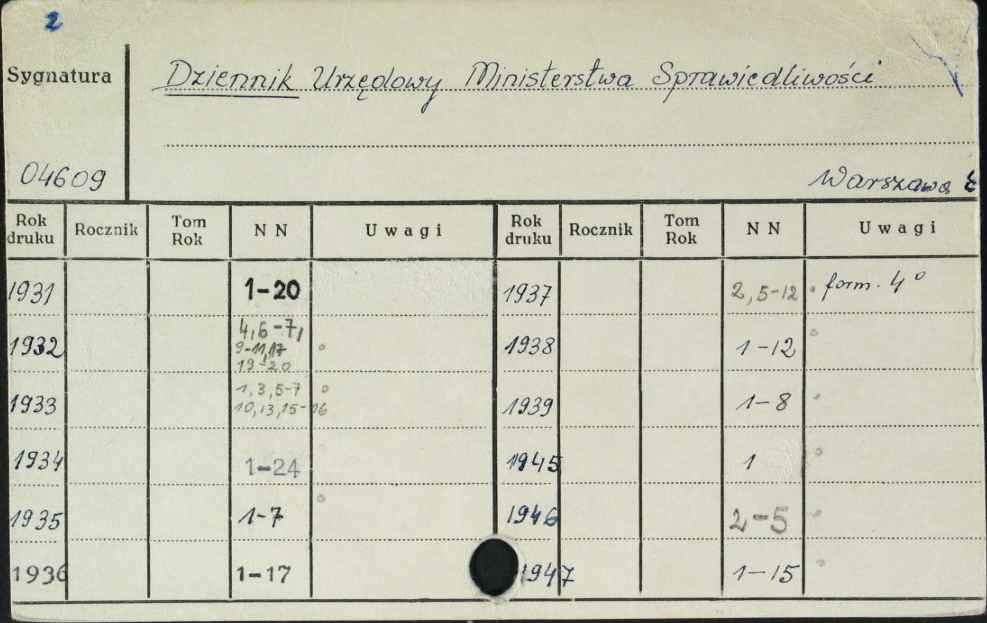 2
Sygnatura
Dziennik Urzędowy Ministerstwa Sprawiedliwości
04609
Warszawa
Rok druku Rocznik Tom Rok NN Uwagi Rok druku Rocznik Tom Rok NN Uwagi
1931 1-20 1937 2,5-12 form. 4°
1932 4,6-7, 9-11,17 19-20 1938 1-12
1933 1,3,5-7 10,13,15-16 1939 1-8
1934 1-24 1945 1
1935 1-7 1946 2-5
1936 1-17 1947 1-15